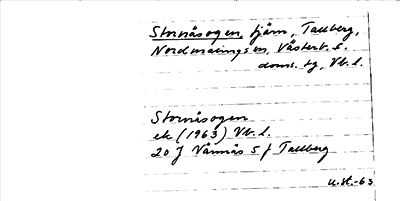 Stornäsogen, tjärn, Tallberg,
Nordmalings sn, Västerb. s.
doms. tg, Vb. l.
Stornäsogen
ek (1963) Vb. l.
20 J Vännäs 5 f Tallberg
u. st. -63